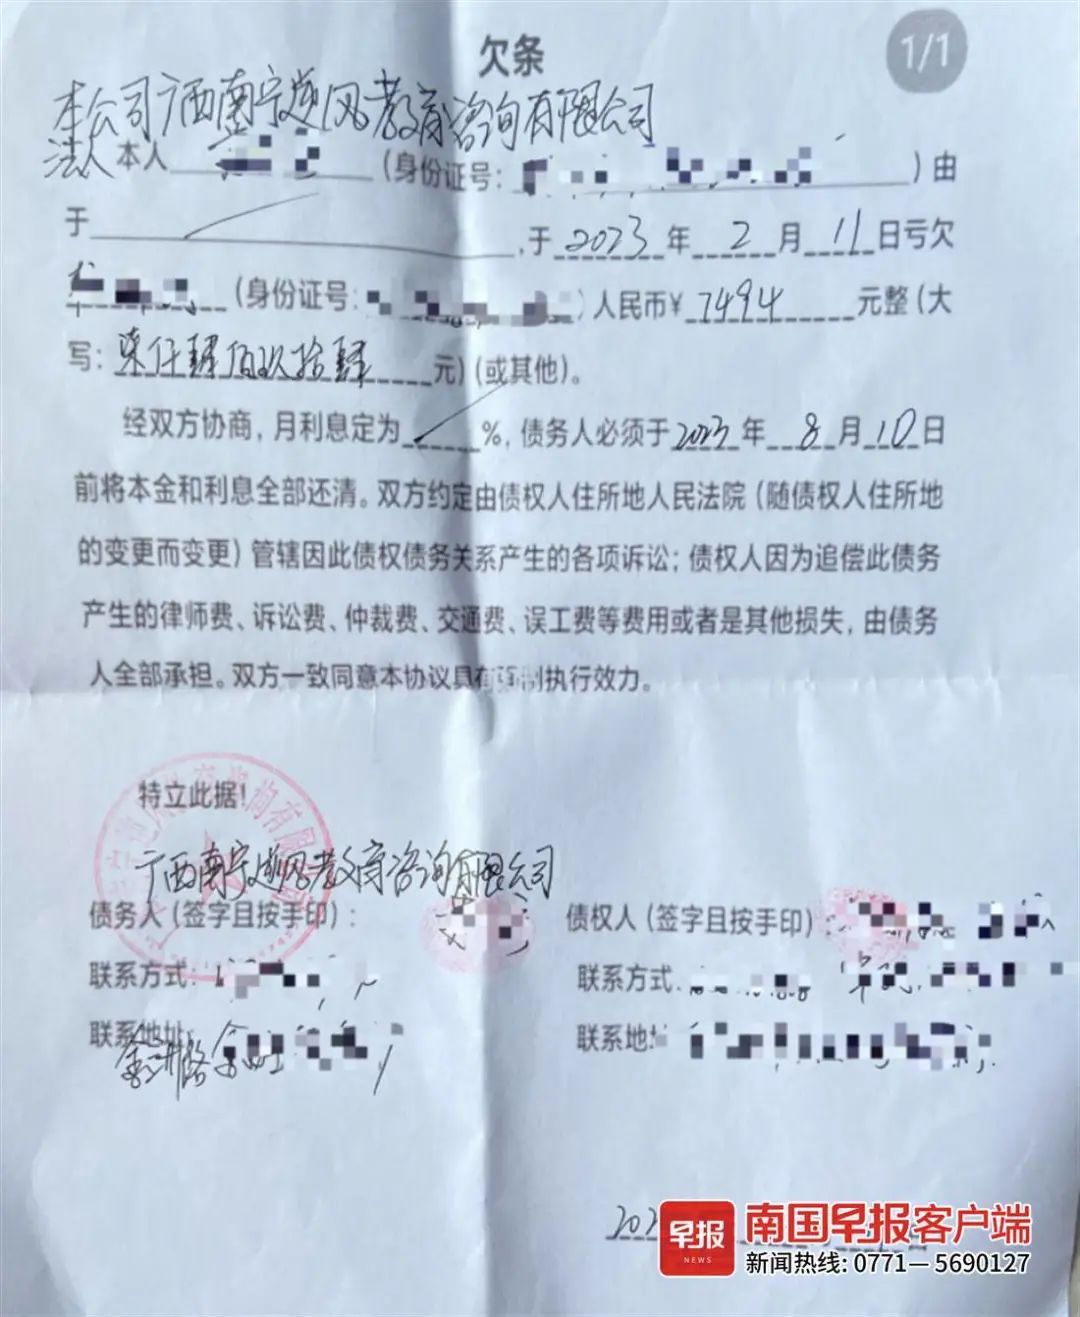 欠条
1/1
本公司广西南宁逆风教育咨询有限公司
法人本人（身份证号：）由
于，于2023年2月11日亏欠
（身份证号：）人民币¥7494元整（大
写：柒仟肆佰玖拾肆元）（或其他）。
经双方协商，月利息定为%，债务人必须于2023年8月10日
前将本金和利息全部还清。双方约定由债权人住所地人民法院（随债权人住所地
的变更而变更）管辖因此债权债务关系产生的各项诉讼；债权人因为追偿此债务
产生的律师费、诉讼费、仲裁费、交通费、误工费等费用或者是其他损失，由债务
人全部承担。双方一致同意本协议具有强制执行效力。
特立此据！
广西南宁逆风教育咨询有限公司
债务人（签字且按手印）：
债权人（签字且按手印）
联系方式：
联系方式
联系地址：
联系地址
金洲路
早报
NEWS
南国早报客户端
新闻热线：0771—5690127